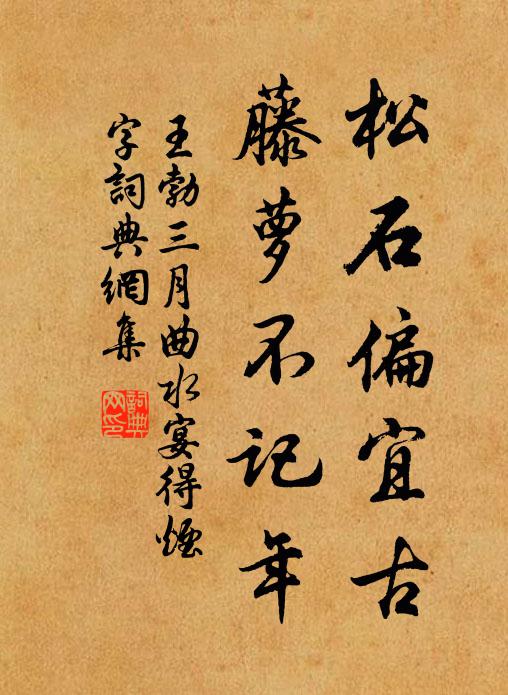 松石偏宜古
藤萝不记年
王勃三月曲水宴得烟
字詞典網集
詞典網印